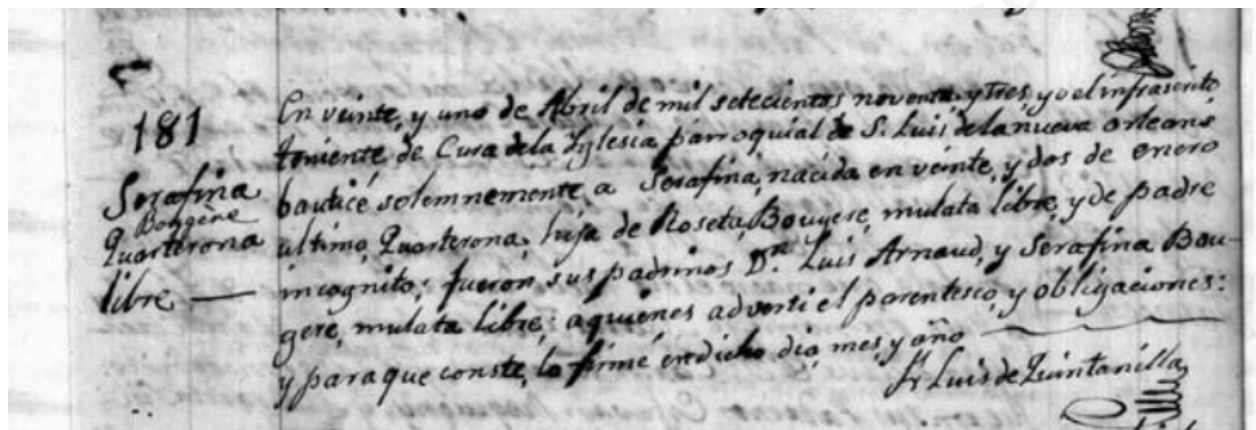 181
Serafina
Bougere
Quarterona
libre
En veinte, y uno de Abril de mil setecientos noventa, y Tres, yo el infrascrito
teniente, de Cura dela Yglesia parroquial de S. Luis dela nueva orleans
bauticé solemnemente, a Serafina, nacida en veinte, y dos de enero
ultimo, Quarterona, hija de Roseta, Bougere, mulata libre, y de padre
incognito; fueron sus padrinos Dn. Luis Arnaud, y Serafina Bou-
gere, mulata libre; aquienes adverti el parentesco, y obligaciones:
y paraque conste, lo firmé en dicho dia, mes, y año
Fr. Luis de Quintanilla